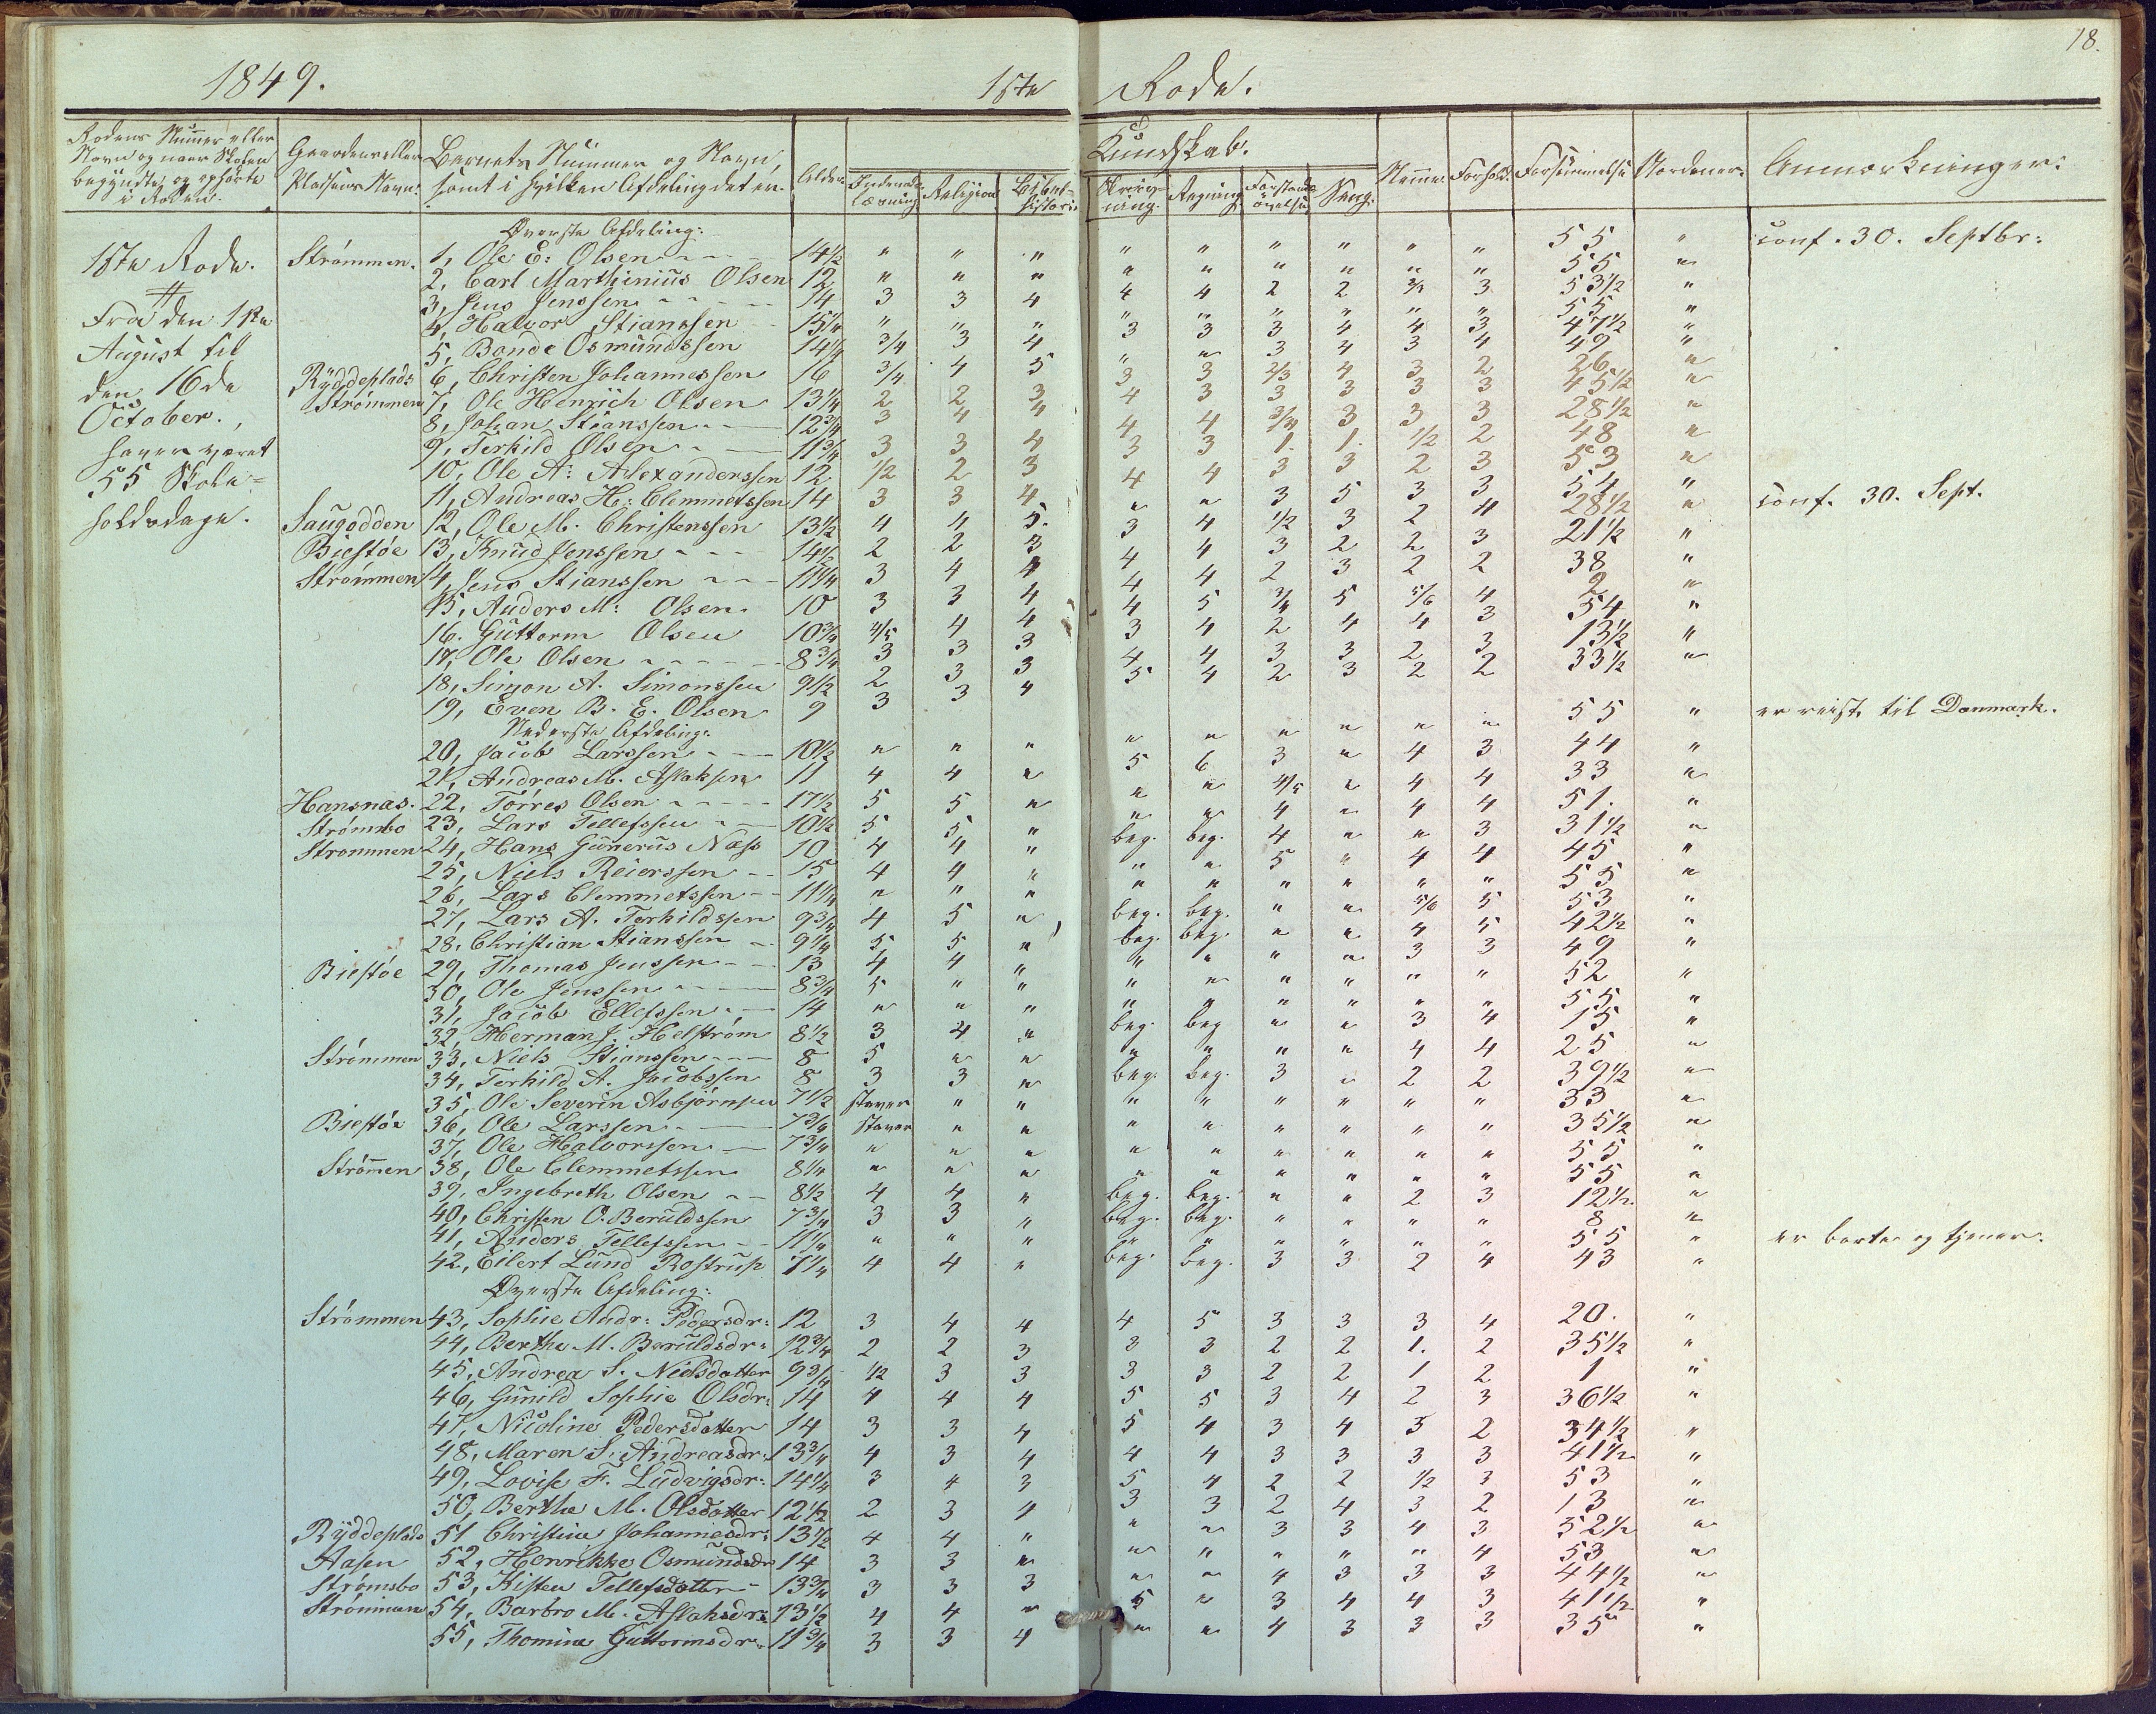 18.
1849. 1ste Rode.
Rodens Nummer eller Navn og naar Skolen begyndte og ophörte i Roden. | Gaardens eller Pladsens Navn. | Barnets Nummer og Navn, samt i hvilken Afdeling det er. | Alder. | Kundskab: Indenads Læsning. | Religion | Bibelhistorie | Skrivning. | Regning | Forstandsøvelse | Sang. | Nemme. | Forhold. | Forsømmelse | Anmærkninger:
Øverste Afdeling:
1ste Rode. Strømmen. 1, Ole E: Olsen 14½ " " " " " " " " " 55 " Conf. 30. Septbr:
2, Carl Marthinius Olsen 12 " " " " " " " " " 55 "
Fra den 1ste 3, Jens Jenssen 14 3 3 4 4 4 2 2 3 53½ "
4, Halvor Stianssen 15¼ " " " " " " " " " 55 "
August til 5, Bonde Osmundssen 14¼ 3/4 3 4 3 3 3 4 4 3 47½ "
den 16de Ryddeplads 6, Christen Johannessen 16 3/4 4 5 " " 3 4 3 4 49 "
October., Strømmen 7, Ole Henrich Olsen 13¼ 2 2 3 3 3 2/3 4 3 2 26 "
8, Johan Stianssen 12¾ 3 4 4 4 3 3 3 3 3 45½ "
haver været 9, Terkild Olsen 11¾ 3 3 4 4 4 3/4 3 3 3 28½ "
55 Skole= 10, Ole A: Alexanderssen 12 1/2 2 3 3 3 1. 1. 1/2 2 48 "
11, Andreas H: Clemmetssen 14 3 3 4 4 4 3 3 2 3 53 "
holdsdage. Saugodden 12, Ole M. Christenssen 13½ 4 4 5. " " 3 5 3 3 54 " Conf. 30. Sept.
Biestøe 13, Knud Jenssen 14½ 2 2 3 3 4 1/2 3 2 4 28½ "
Strømmen 14, Jens Stianssen 11¼ 3 4 4 4 4 3 2 2 3 21½ "
15, Anders M: Olsen. 10 3 3 4 4 4 2 3 2 2 38 "
16. Guttorm Olsen 10¾ 4/5 4 4 4 5 3/4 5 5/6 4 2 "
17, Ole Olsen 8¾ 3 3 3 3 4 2 4 4 3 54 "
18, Simon A. Simonssen 9½ 2 3 3 4 4 3 3 2 3 13½ "
19, Even B. E. Olsen 9 3 3 4 5 4 2 3 2 2 33½ "
Nederste Afdeling:
20, Jacob Larssen 10½ " " " " " " " " " 55 " er reist til Danmark.
21, Andreas M. Aslaksen 11 4 4 " 5 6 3 " 4 3 44 "
Hansnæs. 22, Tørres Olsen 17½ 5 5 " " " 4/5 " 4 4 33 "
Strømsbo 23, Lars Tellefssen 10½ 5 5 " " " 4 " 4 4 51. "
Strømmen 24, Hans Gunerus Næss 10 4 4 " beg. beg. 4 " " 3 31½ "
25, Niels Reierssen 15 4 4 " " " 5 " 4 4 45 "
26, Lars Clemmetssen 11¼ " " " " " " " " " 55 "
27, Lars A. Terkildssen 9¾ 4 5 " beg. beg. " " 5/6 5 53 "
28, Christian Stianssen 9¼ 5 5 " beg. beg. " " 4 5 42½ "
Biestøe 29, Thomas Jenssen 13 4 4 " " " " " 3 3 49 "
30, Ole Jenssen 8¾ 5 " " " " " " " " 52 "
31, Jacob Ellefssen 14 " " " " " " " " " 55 "
32, Herman J. Helstrøm 8½ 3 4 " beg. beg " " 3 4 15 "
Strømmen 33, Niels Stianssen 8 5 " " " " " " 4 4 25 "
34, Terkild A. Jacobssen 8 3 3 " beg. beg. 3 " 2 2 39½ "
35, Ole Severin Asbjørnsen 7½ staver " " " " " " " " 33 "
Biestøe 36, Ole Larssen 7¾ staver " " " " " " " " 35½ "
37, Ole Halvorssen 7¾ " " " " " " " " " 55 "
Strømen 38, Ole Clemmetssen 8¼ " " " " " " " " " 55 "
39, Ingebreth Olsen 8½ 4 4 " beg. beg. " " 2 3 12½ "
40, Christen O. Beruldssen 7¾ 3 3 " beg. beg. " " " " 8 "
41, Anders Tellefssen 11¼ " " " " " " " " " 55 " er borte og tjener.
42, Eilert Lund Rostrup 7¼ 4 4 " beg. beg. 3 3 2 4 43 "
Øverste Afdeling:
Strømmen 43, Sophie Andr: Pedersdr: 12 3 4 4 4 5 3 3 3 4 20. "
44, Berthe M. Beruldsdr: 12¾ 2 2 3 3 3 2 2 1. 2 35½ "
45, Andrea S. Nielsdatter 9¾ 1/2 3 3 3 3 2 2 1 2 1 "
46, Gunild Sophie Olsdr: 14 4 4 4 5 5 3 4 2 3 36½ "
47, Nicoline Pedersdatter 14 3 3 4 5 4 3 4 3 2 34½ "
48, Maren S. Andreasdr. 13¾ 4 3 4 4 4 3 3 3 3 41½ "
49, Lovise F. Ludvigsdr: 14¼ 3 4 3 5 4 2 2 1/2 3 53 "
50, Berthe M. Olsdatter 12½ 2 3 4 3 3 2 4 3 2 13 "
Ryddeplads 51 Christine Johannesdr: 13½ 4 4 " " " 3 3 4 3 52½ "
Aasen 52, Henrikke Osmundsdr 14 3 3 " " " " " " 4 53 "
Strømsbo 53, Kisten Tellefsdatter 13¾ 3 3 3 " " 4 3 3 3 44½ "
Strømmen 54, Barbro M. Aslaksdr: 13½ 4 4 " 5 " 3 4 4 3 41½ "
55, Thomine Guttormsdr. 11¾ 3 3 4 " " 4 3 3 3 35 "